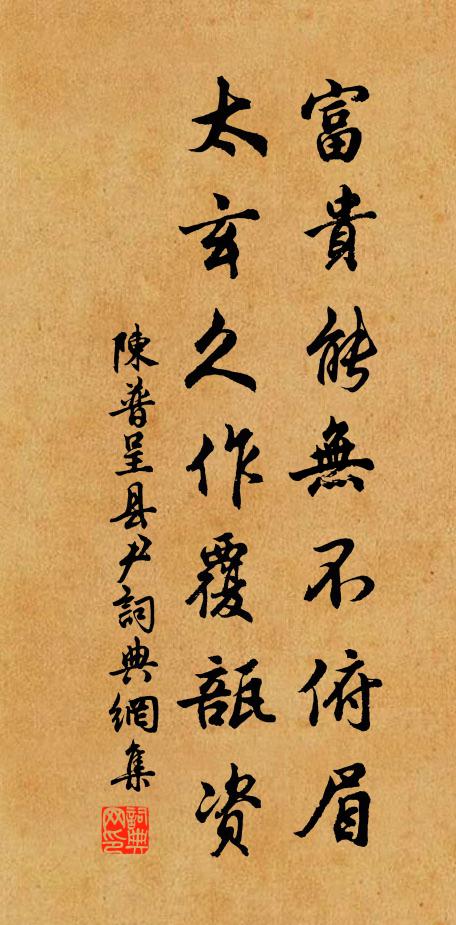 富貴能無不俯眉
太玄久作覆瓿资
陳普呈县尹詞典網集
詞典网印